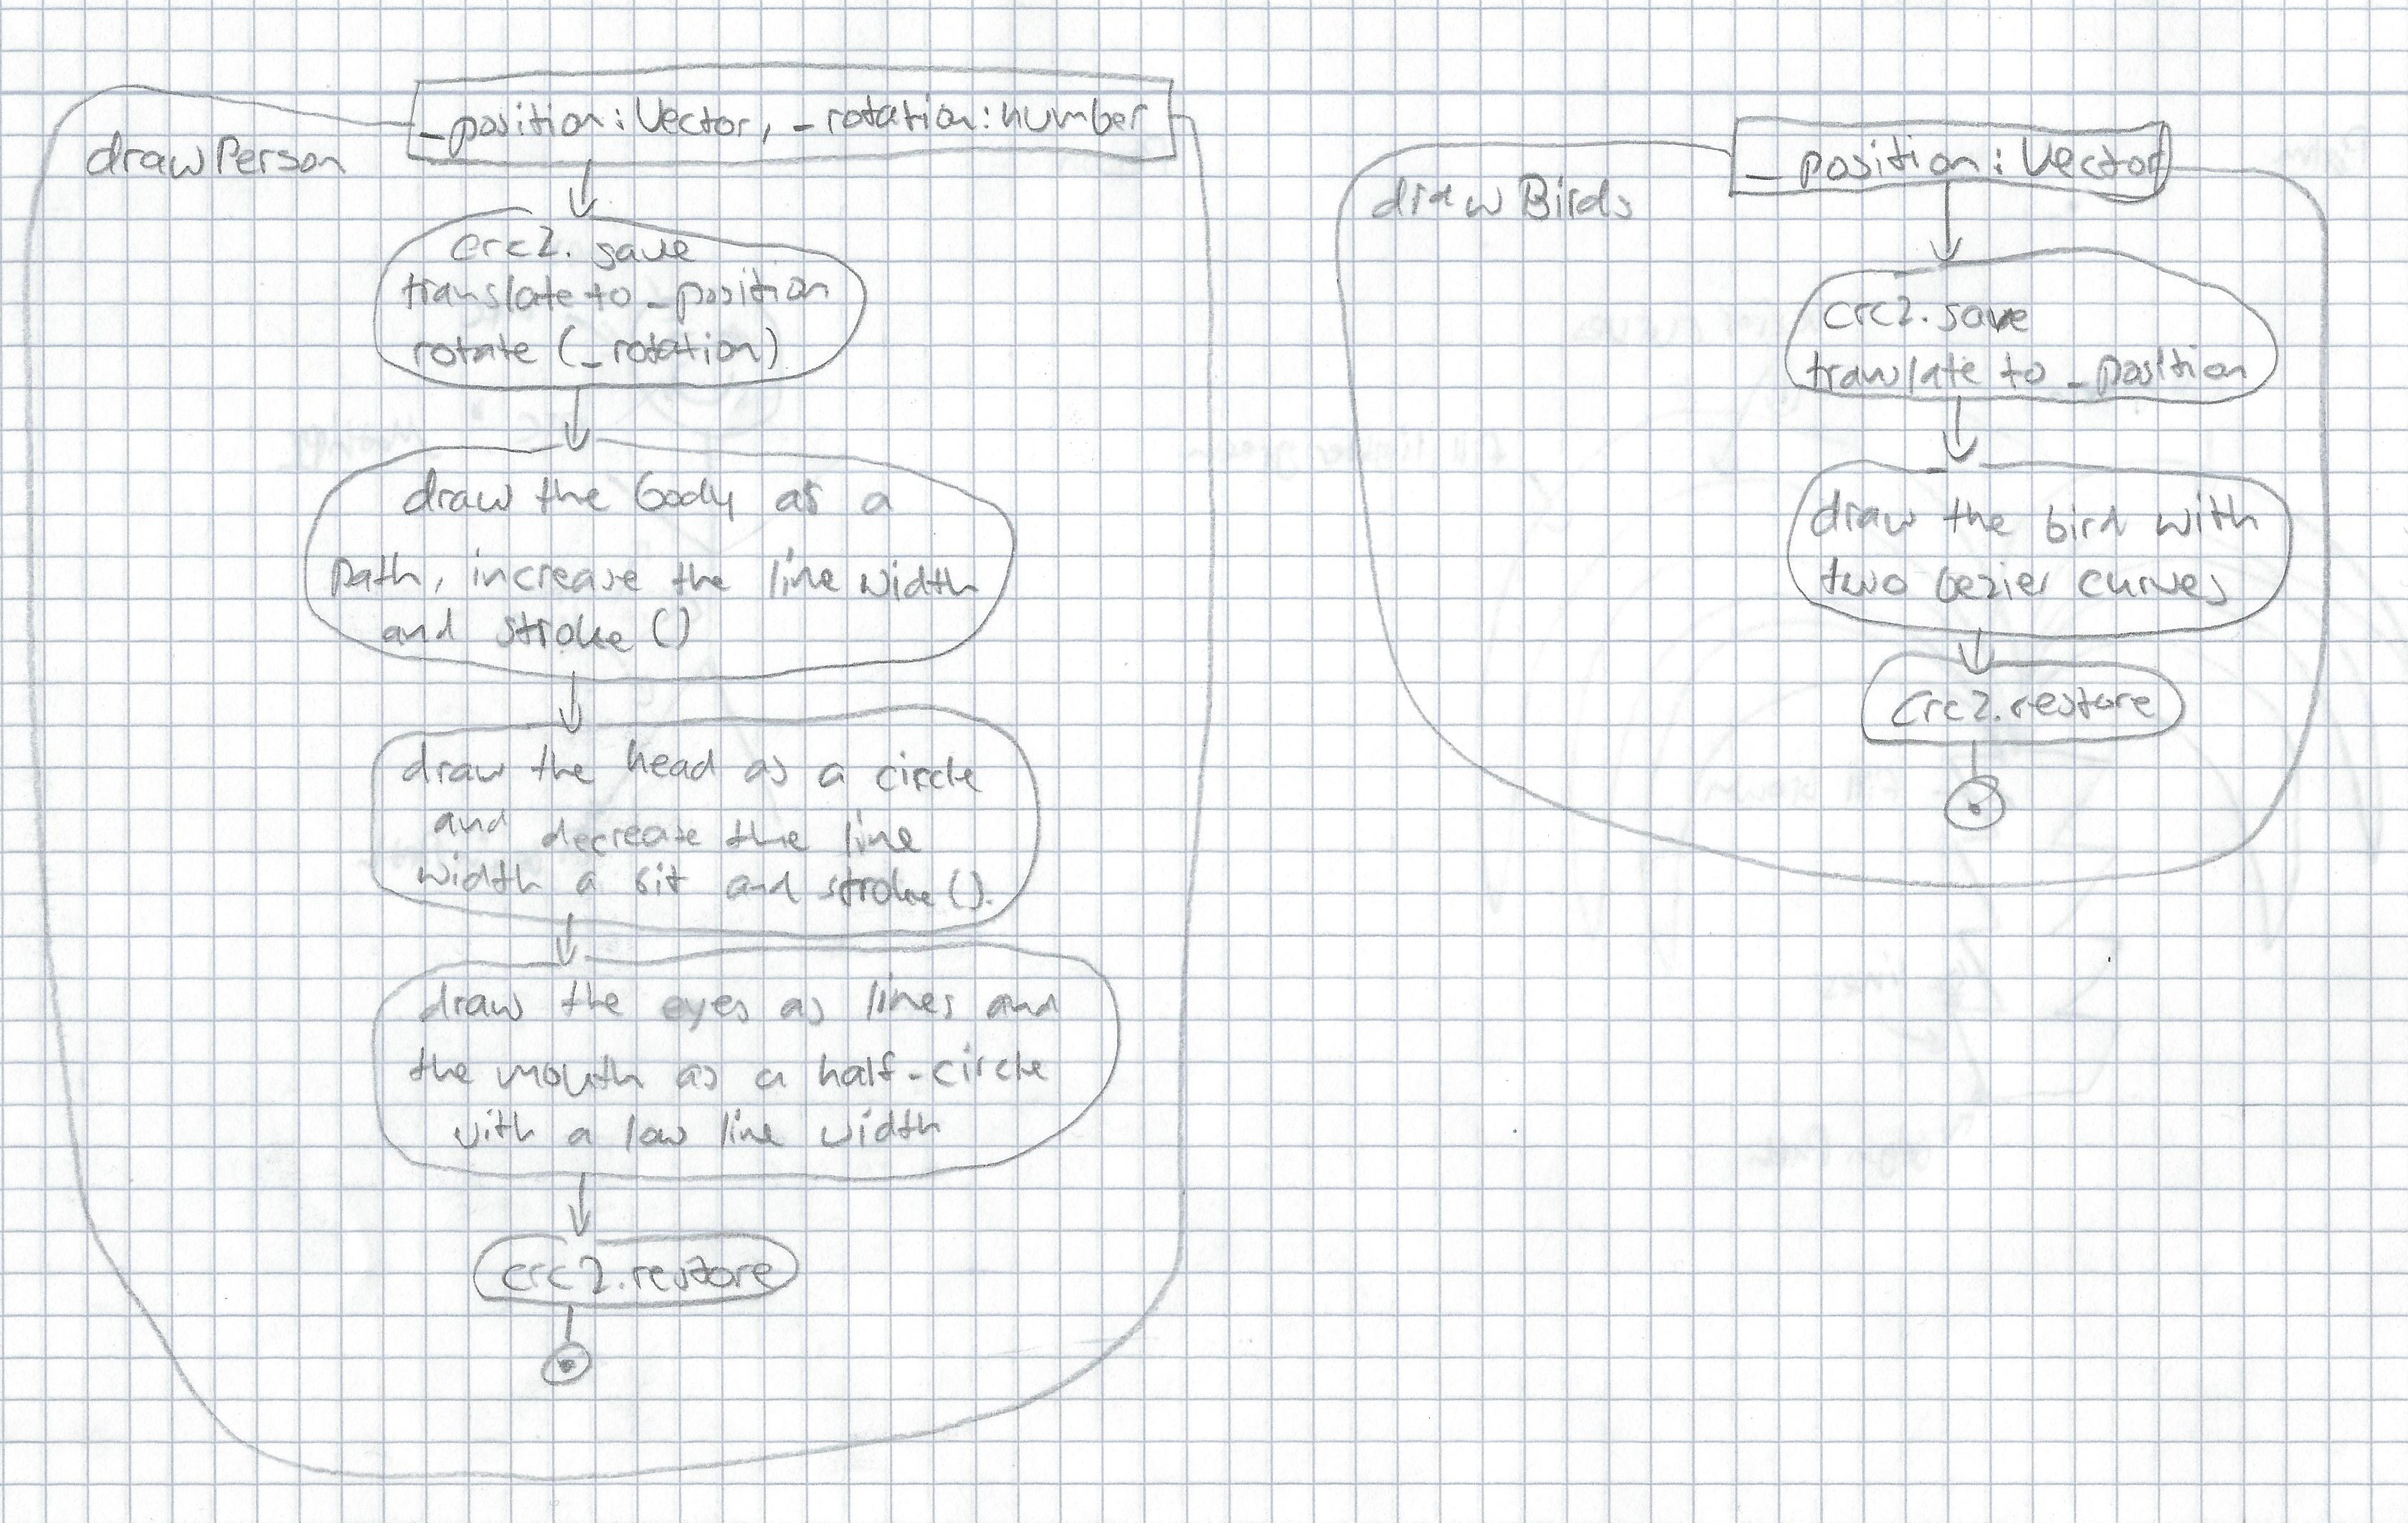 drawPerson
_position: Vector, _rotation: number
crc2. save
translate to _position
rotate (_rotation)
draw the body as a
path, increase the line width
and stroke ()
draw the head as a circle
and decrease the line
width a bit and stroke ().
draw the eyes as lines and
the mouth as a half-circle
with a low line width
crc2.restore
drawBirds
_position: Vector
crc2. save
translate to _position
draw the bird with
two bezier curves
crc2.restore